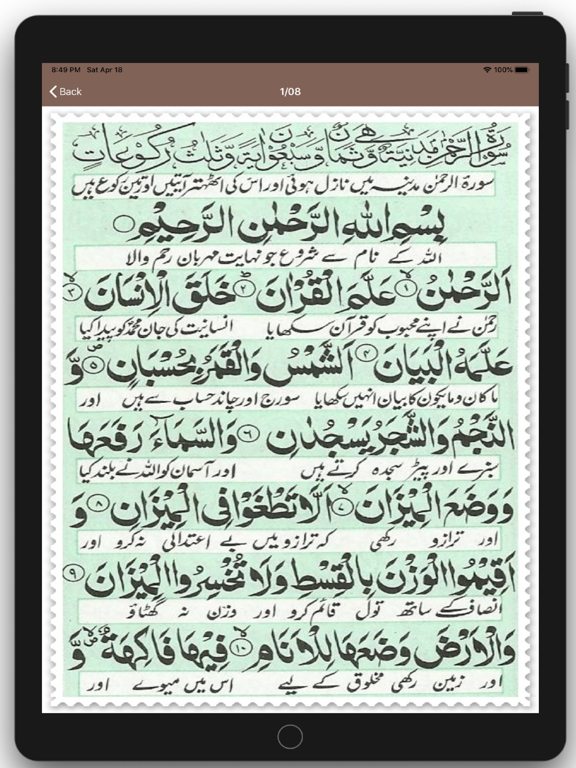 8:49 PM Sat Apr 18 100%
Back 1/08
سُوْرَةُ الرَّحْمٰنِ مَدَنِيَّةٌ وَّهِيَ ثَمَانٌ وَّسَبْعُوْنَ اٰيَةً وَّثَلٰثُ رُكُوْعَاتٍ
سورۃ الرحمٰن مدینہ میں نازل ہوئی اور اس کی اٹھتر آیتیں اور تین رکوع ہیں
بِسْمِ اللّٰهِ الرَّحْمٰنِ الرَّحِيْمِ
اللہ کے نام سے شروع جو نہایت مہربان رحم والا
اَلرَّحْمٰنُ ۱ عَلَّمَ الْقُرْاٰنَ ۲ خَلَقَ الْاِنْسَانَ ۳
رحمٰن نے اپنے محبوب کو قرآن سکھایا انسانیت کی جان محمد کو پیدا کیا
عَلَّمَهُ الْبَيَانَ ۴ اَلشَّمْسُ وَالْقَمَرُ بِحُسْبَانٍ ۵ وَّ
ما کان وما یکون کا بیان انہیں سکھایا سورج اور چاند حساب سے ہیں اور
النَّجْمُ وَالشَّجَرُ يَسْجُدٰنِ ۶ وَالسَّمَآءَ رَفَعَهَا
سبزے اور پیڑ سجدہ کرتے ہیں اور آسمان کو اللہ نے بلند کیا
وَوَضَعَ الْمِيْزَانَ ۷ اَلَّا تَطْغَوْا فِى الْمِيْزَانِ ۸ وَ
اور ترازو رکھی کہ ترازو میں بے اعتدالی نہ کرو اور
اَقِيْمُوا الْوَزْنَ بِالْقِسْطِ وَلَا تُخْسِرُوا الْمِيْزَانَ ۹
انصاف کے ساتھ تول قائم کرو اور وزن نہ گھٹاؤ
وَالْاَرْضَ وَضَعَهَا لِلْاَنَامِ ۱۰ فِيْهَا فَاكِهَةٌ وَّ
اور زمین رکھی مخلوق کے لیے اس میں میوے اور